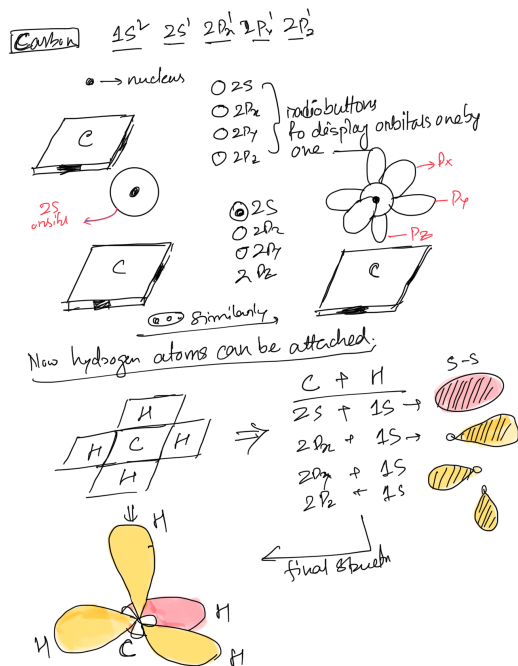 Carbon 1S² 2S¹ 2Px¹ 2Py¹ 2Pz¹
→ nucleus
2S
2Px
2Py
2Pz
radio buttons
to display orbitals one by
one
C
2S
orbital
Px
Py
Pz
2S
2Px
2Py
2Pz
C
C
similarly
Now hydrogen atoms can be attached.
H
H C H
H
⇒
C + H
2S + 1S →
2Px + 1S →
2Py + 1S
2Pz + 1S
S-S
⇓
final
H
H
H
H
C